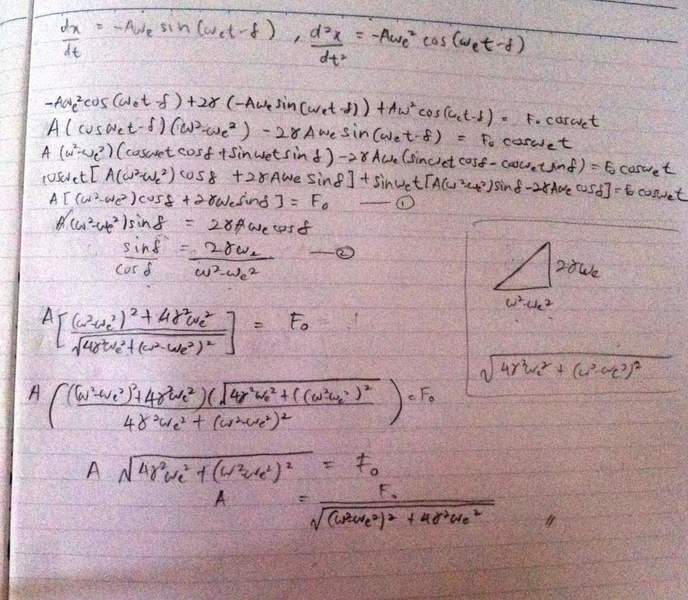 dx/dt = -Aωe sin(ωet-δ) , d²x/dt² = -Aωe² cos(ωet-δ)
-Aωe²cos(ωet-δ) + 2γ(-Aωe sin(ωet-δ)) + Aω²cos(ωet-δ) = F₀ cosωet
A(cosωet-δ)(ω²-ωe²) - 2γAωe sin(ωet-δ) = F₀ cosωet
A(ω²-ωe²)(cosωet cosδ + sinωet sinδ) - 2γAωe(sinωet cosδ - cosωet sinδ) = F₀ cosωet
cosωet[A(ω²-ωe²)cosδ + 2γAωe sinδ] + sinωet[A(ω²-ωe²)sinδ - 2γAωe cosδ] = F₀ cosωet
A[(ω²-ωe²)cosδ + 2γωe sinδ] = F₀ — ①
A(ω²-ωe²)sinδ = 2γAωe cosδ
sinδ/cosδ = 2γωe/ω²-ωe² — ②
2γωe
ω²-ωe²
√4γ²ωe² + (ω²-ωe²)²
A[(ω²-ωe²)² + 4γ²ωe²/√4γ²ωe² + (ω²-ωe²)²] = F₀
A(((ω²-ωe²)²+4γ²ωe²)(√4γ²ωe² + ((ω²-ωe²)²/4γ²ωe² + (ω²-ωe²)²) = F₀
A √4γ²ωe² + (ω²-ωe²)² = F₀
A = F₀/√(ω²-ωe²)² + 4γ²ωe² //